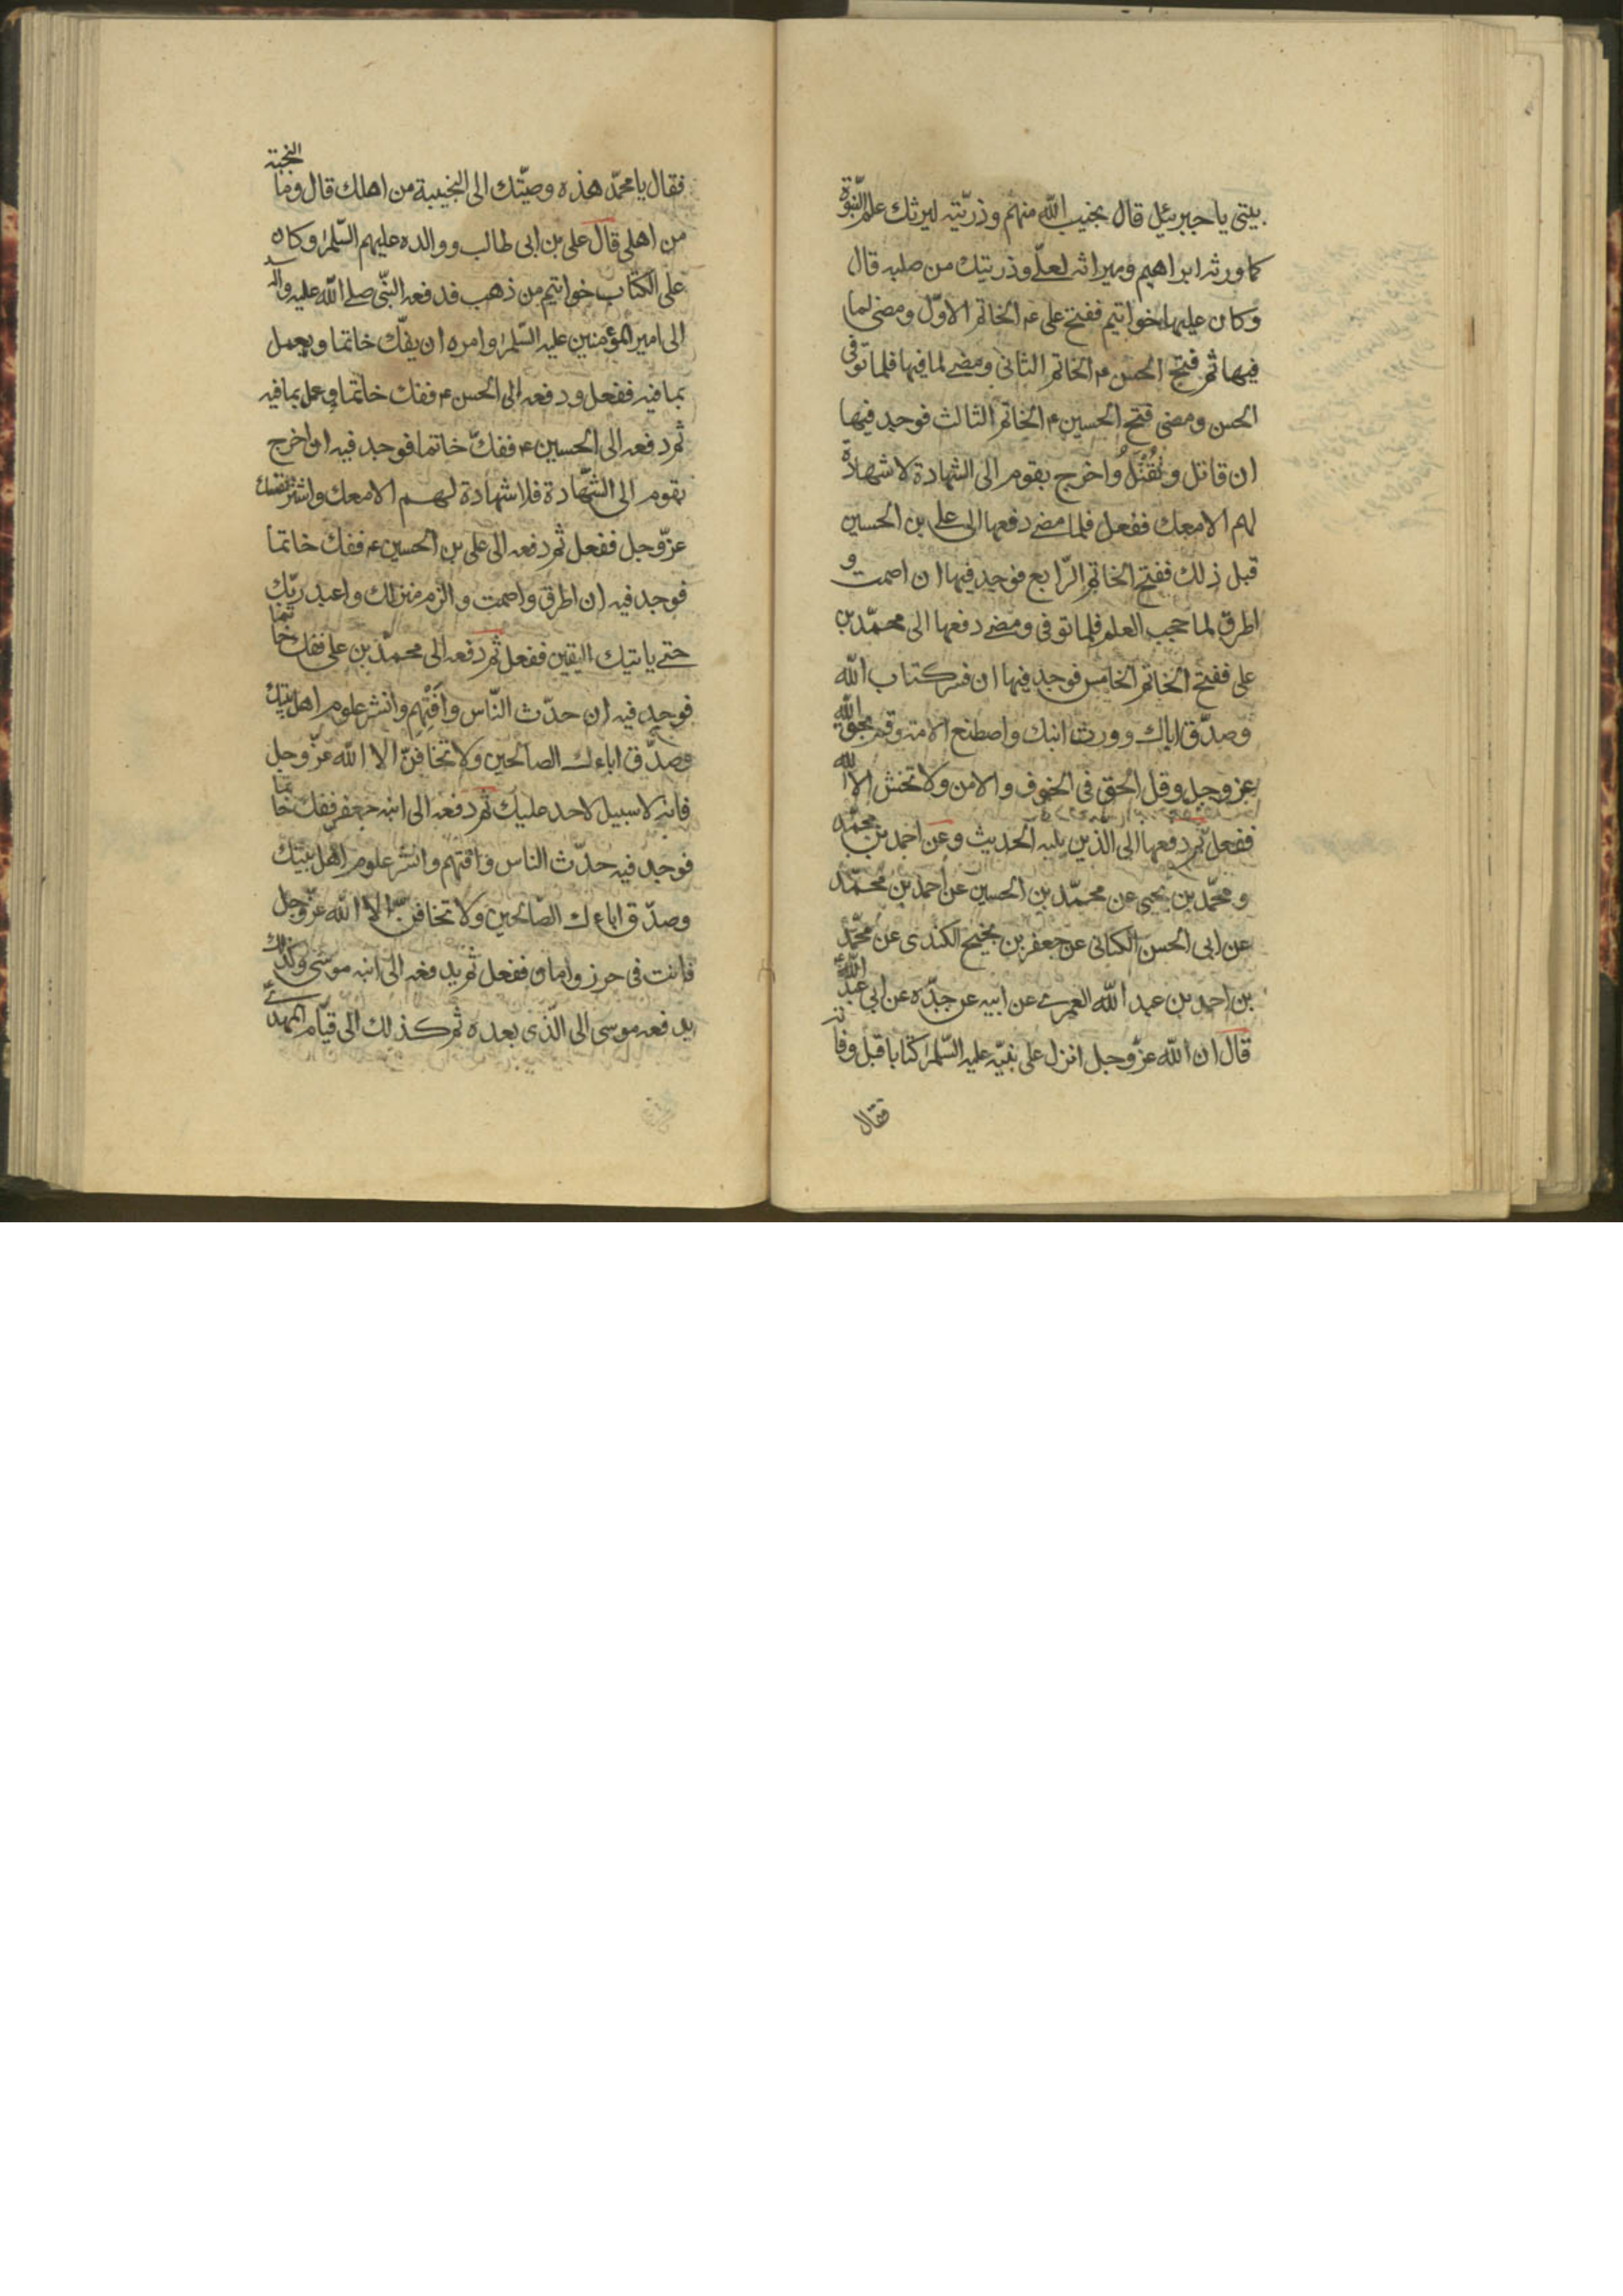 بيتى يا جبرئيل قال نجيب الله منهم وذريّته ليرثك علم النّبوّة
كما ورثه ابراهيم وميراثه لعلّي وذريتك من صلبه قال
وكان عليها خواتيم ففتح على ع الخاتم الاوّل ومضى لما
فيها ثم فتح الحسن ع الخاتم الثانى ومضى لما فيها فلما توّفى
الحسن ومضى فتح الحسين ع الخاتم الثالث فوجد فيها
ان قاتل وتُقْتَلُ واخرج بقوم الى الشهادة لا شهادة
لهم الا معك ففعل فلما مضى دفعها الى على بن الحسين
قبل ذلك ففتح الخاتم الرّابع فوجد فيها ان اصمت و
اطرق لما حجب العلم فلما توفى ومضى دفعها الى محمّد بن
على ففتح الخاتم الخامس فوجد فيها ان فسر كتاب الله
وصدّق اباك وورث ابنك واصطنع الامة وقم بحق الله
عز وجل وقل الحق فى الخوف والامن ولا تخش الا الله
ففعل ثم دفعها الى الذين يليه الحديث وعن احمد بن محمّد
و محمّد بن يحيى عن محمّد بن الحسين عن احمد بن محمّد
عن ابى الحسن الكنانى عن جعفر بن نجيح الكندى عن محمّد
بن احمد بن عبد الله العمرى عن ابيه عن جدّه عن ابى عبد الله ع
قال ان الله عزّ وجل انزل على نبيّه عليه السّلم كتابا قبل وفاته
فقال
فقال يا محمّد هذه وصيّتك الى النجيبة من اهلك قال وما النجبة
من اهلى قال على بن ابى طالب وولده عليهم السّلم وكان
على الكتاب خواتيم من ذهب فدفعه النّبى صلى الله عليه واله
الى امير المؤمنين عليه السّلم وامره ان يفّك خاتما ويعمل
بما فيه ففعل ودفعه الى الحسن ع ففك خاتما وعمل بما فيه
ثم دفعه الى الحسين ع ففكّ خاتما فوجد فيه ان اخرج
بقوم الى الشّهادة فلا شهادة لهم الا معك واشتر نفسك
عزّ وجل ففعل ثم دفعه الى على بن الحسين ع ففك خاتما
فوجد فيه ان اطرق واصمت والزم منزلك واعبد ربّك
حتى ياتيك اليقين ففعل ثم دفعه الى محمّد بن على ففك خاتما
فوجد فيه ان حدّث النّاس وأَفْتِهم وانشر علوم اهل بيتك
وصدّق اباءك الصالحين ولا تخافنّ الا الله عزّ وجل
فانه لا سبيل لاحد عليك ثم دفعه الى ابنه جعفر ففك خاتما
فوجد فيه حدّث الناس وافتهم وانشر علوم اهل بيتك
وصدّق اباءك الصّالحين ولا تخافنّ الا الله عزّ وجل
فانت فى حرز وامان ففعل ثم يدفعه الى ابنه موسى وكذلك
يدفعه موسى الى الّذى بعده ثم كذلك الى قيام المهدى